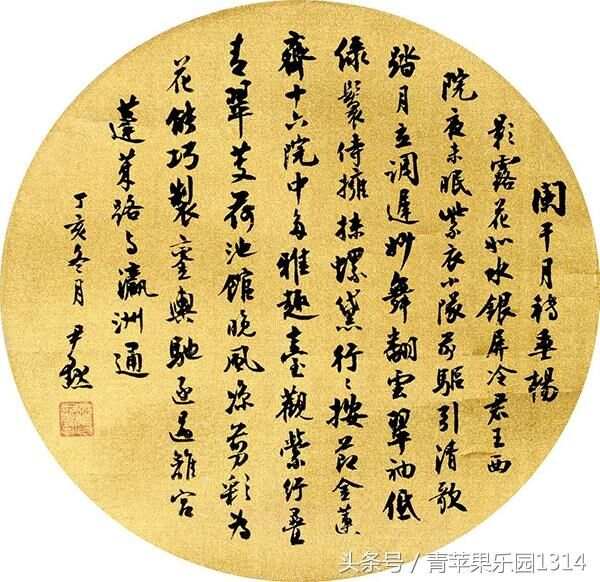 闌干月垂楊
影露花如水銀屏冷君王西
院夜未眠紫衣小隊前驅引清歌
踏月立調遲妙舞翻雲翠袖低
綠鬟侍擁抹螺黛行〻按節金蓮
齊十六院中多雅趣臺觀縈紆疊
青翠芰荷池館晚風涼剪彩為
花能巧製寶輿馳逐過離宮
蓬萊路与瀛洲通
丁亥冬月 尹默
头条号 / 青苹果乐园1314